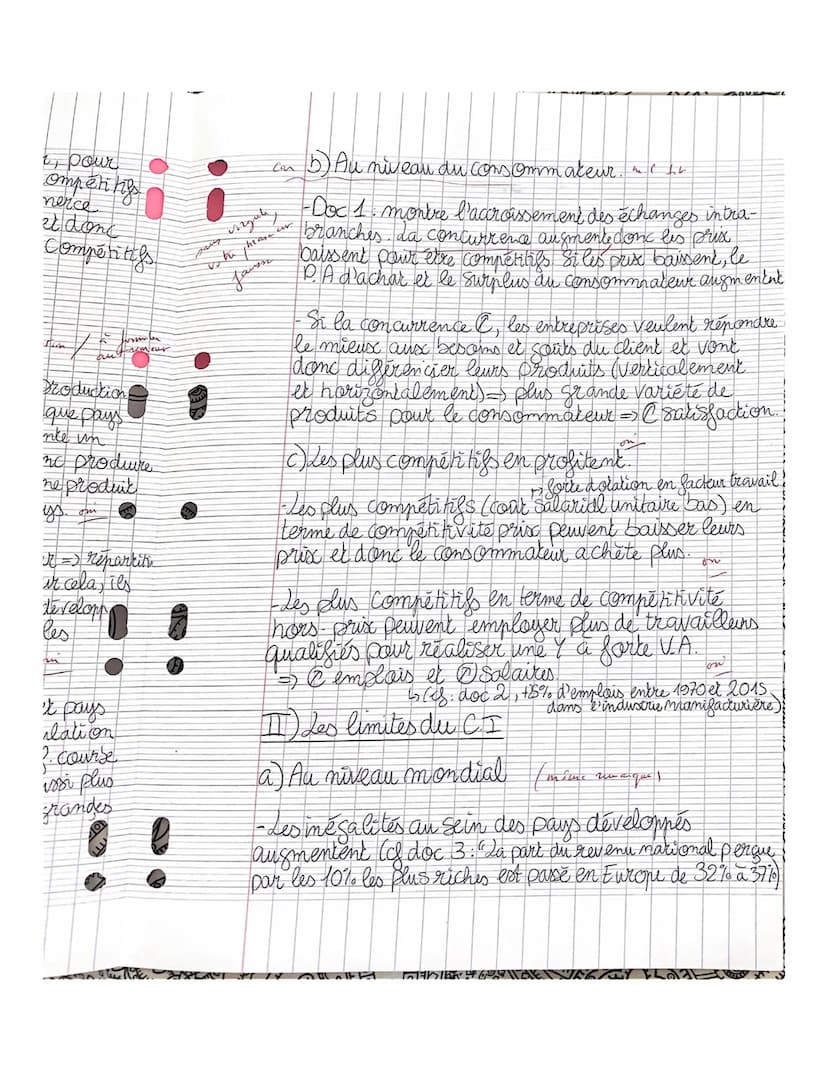 r, pour
ompétitifs
merce
et donc
compétitifs.
à formuler
autrement
production
que pays
nte un
nc produire
ne produit
ys. oui
ur => répartit
ur cela, ils
développ
les
et pays
ulation
P. course
ussi plus
grandes
b) Au niveau du consommateur.
- Doc 1 : montre l'accroissement des échanges intra-
branches. La concurrence augmente donc les prix
baissent pour être compétitifs. Si les prix baissent, le
P.A d'achat et le surplus du consommateur augmentent
sans virgule,
votre phrase
fausse
- Si la concurrence ↗, les entreprises veulent répondre
le mieux aux besoins et goûts du client et vont
donc différencier leurs produits (verticalement
et horizontalement) => plus grande variété de
produits pour le consommateur => ↗ satisfaction.
c) Les plus compétitifs en profitent.
oui
↳ forte dotation en facteur travail
- Les plus compétitifs (coût salarial unitaire bas) en
terme de compétitivité prix peuvent baisser leurs
prix et donc le consommateur achète plus.
oui
- Les plus compétitifs en terme de compétitivité
hors-prix peuvent employer plus de travailleurs
qualifiés pour réaliser une Y à forte V.A.
=> ↗ emplois et ↗ salaires.
oui
↳ (cf. doc 2, +5% d'emplois entre 1970 et 2015
dans l'industrie manifacturière)
II) Les limites du C.I
a) Au niveau mondial (même remarque)
- Les inégalités au sein des pays développés
augmentent (cf doc 3 : "La part du revenu national perçue
par les 10% les plus riches est passé en Europe de 32% à 37%)